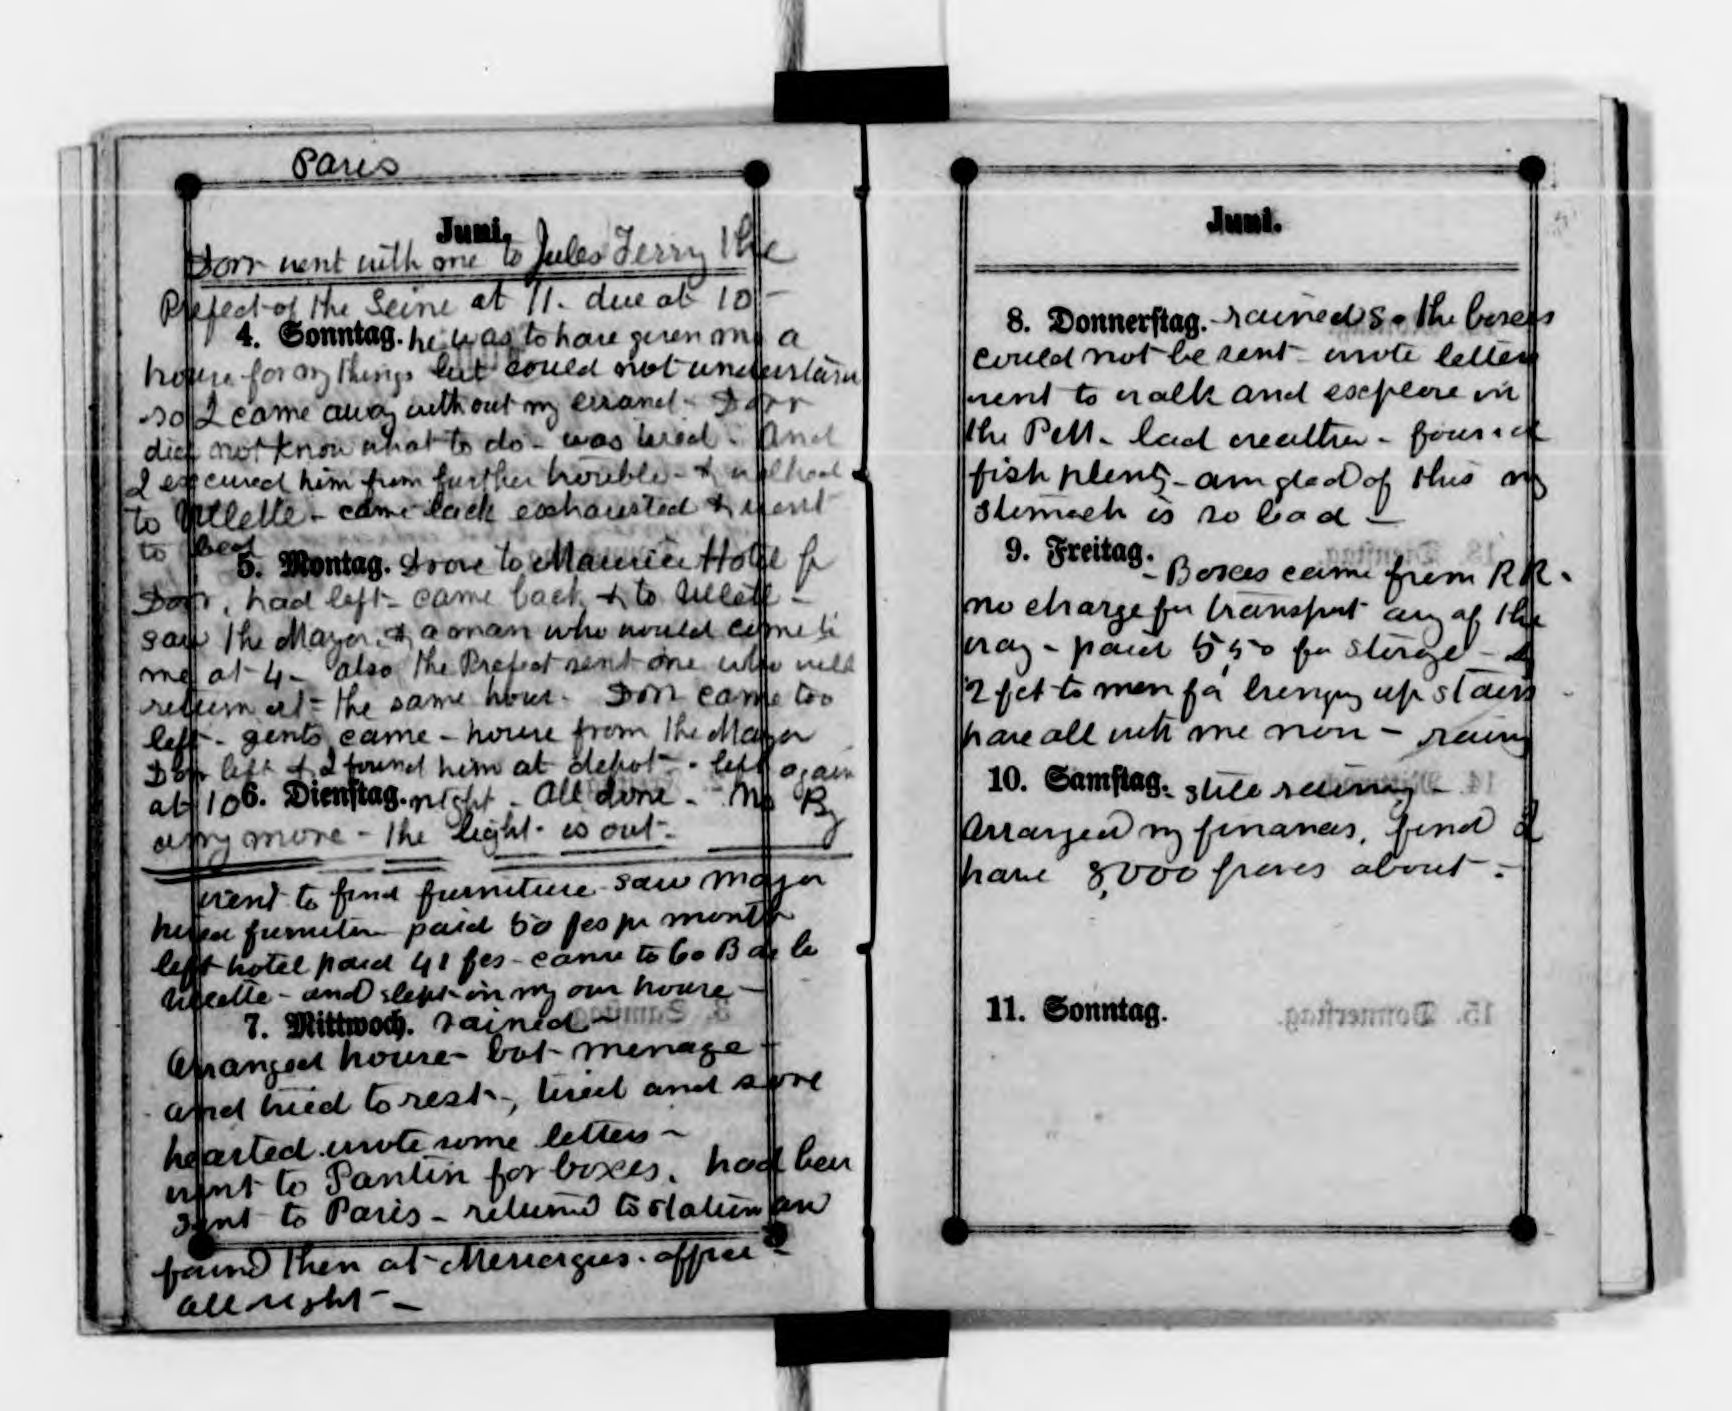 Paris
Juni.
Dorr went with me to Jules Ferry the
Prefect of the Seine at 11. due at 10 -
4. Sonntag. he was to have given me a
house for my things but could not understan
so I came away without my errand - Dorr
did not know what to do - was tired - And
I excused him from further trouble - & walked
to Villette - came back exhausted & went
to bed
5. Montag. Drove to Maurice Hotel for
Dorr, had left - came back & to Villette -
saw the Mayor & a man who would come to
me at 4 - also the Prefect sent one who will
return at the same hour - Dorr came too
left - gents came - house from the Mayor
Dorr left & I found him at depot - left again
at 10
6. Dienstag. night - All done - No By
any more - the light is out -
went to find furniture saw Mayor
hired furniture paid 50 fcs pr month
left hotel paid 41 fcs - came to 60 B de la
Villette - and slept in my own house -
7. Mittwoch. rained -
Arranged house - bot menage -
and tried to rest -, tired and sore
hearted wrote some letters -
went to Pantin for boxes, had been
sent to Paris - returned to station and
found them at office -
all right -
Juni.
8. Donnerstag. - rained so the boxes
could not be sent - wrote letters
went to walk and explore in
the - bad weather - found
fish plenty - am glad of this my
stomach is so bad -
9. Freitag. - Boxes came from RR.
no charge for transport any of the
way - paid 5,50 for storage - &
2 fct to men for bringing up stairs
have all with me now - rainy
10. Samstag. - still raining -
Arranged my finances, find I
have 8,000 francs about -
11. Sonntag.